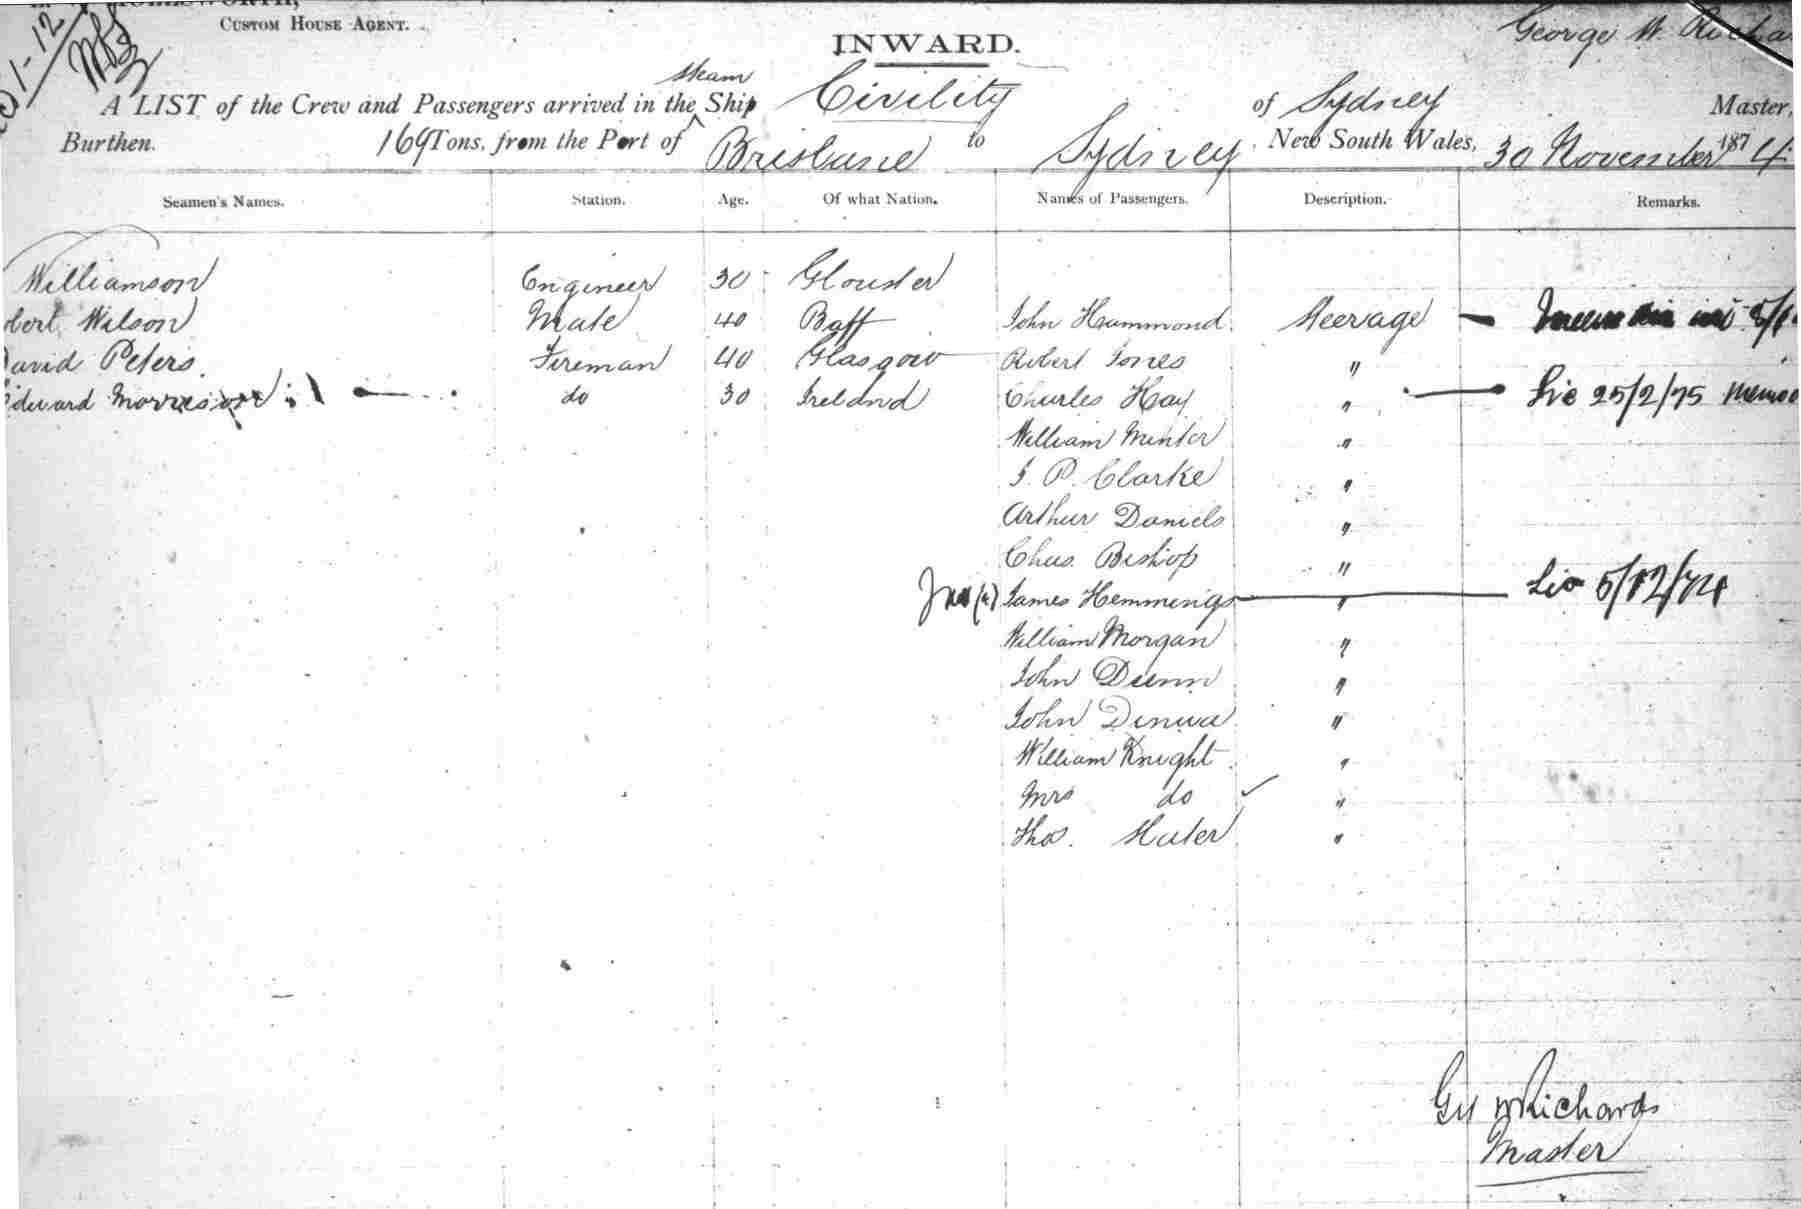 CUSTOM HOUSE AGENT.
INWARD.
George W.
A LIST of the Crew and Passengers arrived in the steam Ship Civility of Sydney Master,
Burthen. 169 Tons, from the Port of Brisbane to Sydney New South Wales, 30 November 1874
Seamen's Names. Station. Age. Of what Nation. Names of Passengers. Description. Remarks.
Williamson Engineer 30 Glouster
Wilson Mate 40 John Hammond Steerage
Peters Fireman 40 Glasgow Robert Jones "
Morrison do 30 Ireland Charles Hay " 25/2/75
William Minter "
J. P. Clarke "
Arthur Daniels "
Chas. Bishop "
James Hemmings " 5/12/74
William Morgan "
John Dunn "
John "
William Knight "
Mrs do "
Thos. Slater "
Richards
Master